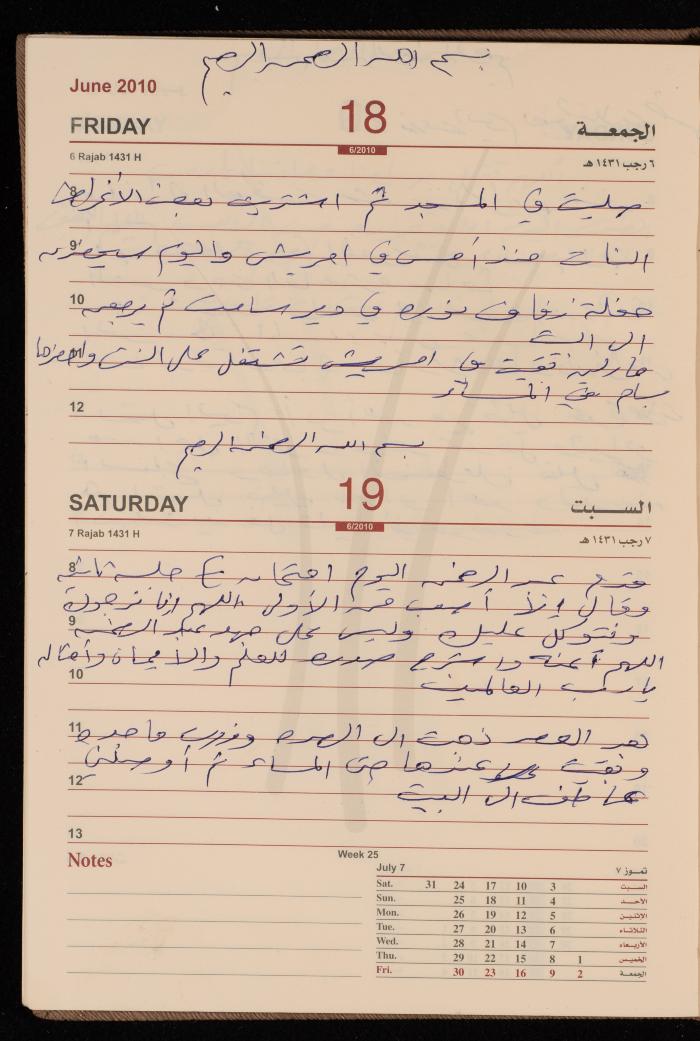 بسم الله الرحمن الرحيم
June 2010
FRIDAY 18 الجمعة
6 Rajab 1431 H 6/2010 ٦ رجب ١٤٣١ هـ
8 صليت في المسجد ثم اشتريت بعض الأغراض
9 البنات منذ أمس في امريش واليوم سيحضرن
10 حفلة زفاف نوره في دير سامت ثم يرجعن
الى البيت
11 بقيت في امريش تشتغل على النت واحضرها
بسام في المساء
12
بسم الله الرحمن الرحيم
SATURDAY 19 السبت
7 Rajab 1431 H 6/2010 ٧ رجب ١٤٣١ هـ
8 قدم عبد الرحمن اليوم امتحانه جلسة ثانية
وقال إنه أصعب من الأول اللهم إنا نرجوك
9 ونتوكل عليك وليس على جهد عبد الرحمن
اللهم أعنه واشرح صدره للعلم والايمان وأمثاله
10 يا رب العالمين
11 بعد العصر ذهبت الى
وبقيت عندها حتى المساء ثم أوصلني
12 عاطف الى البيت
13
Notes
Week 25
July 7 تموز ٧
Sat. 31 24 17 10 3 السبت
Sun. 25 18 11 4 الأحد
Mon. 26 19 12 5 الإثنين
Tue. 27 20 13 6 الثلاثاء
Wed. 28 21 14 7 الأربعاء
Thu. 29 22 15 8 1 الخميس
Fri. 30 23 16 9 2 الجمعة